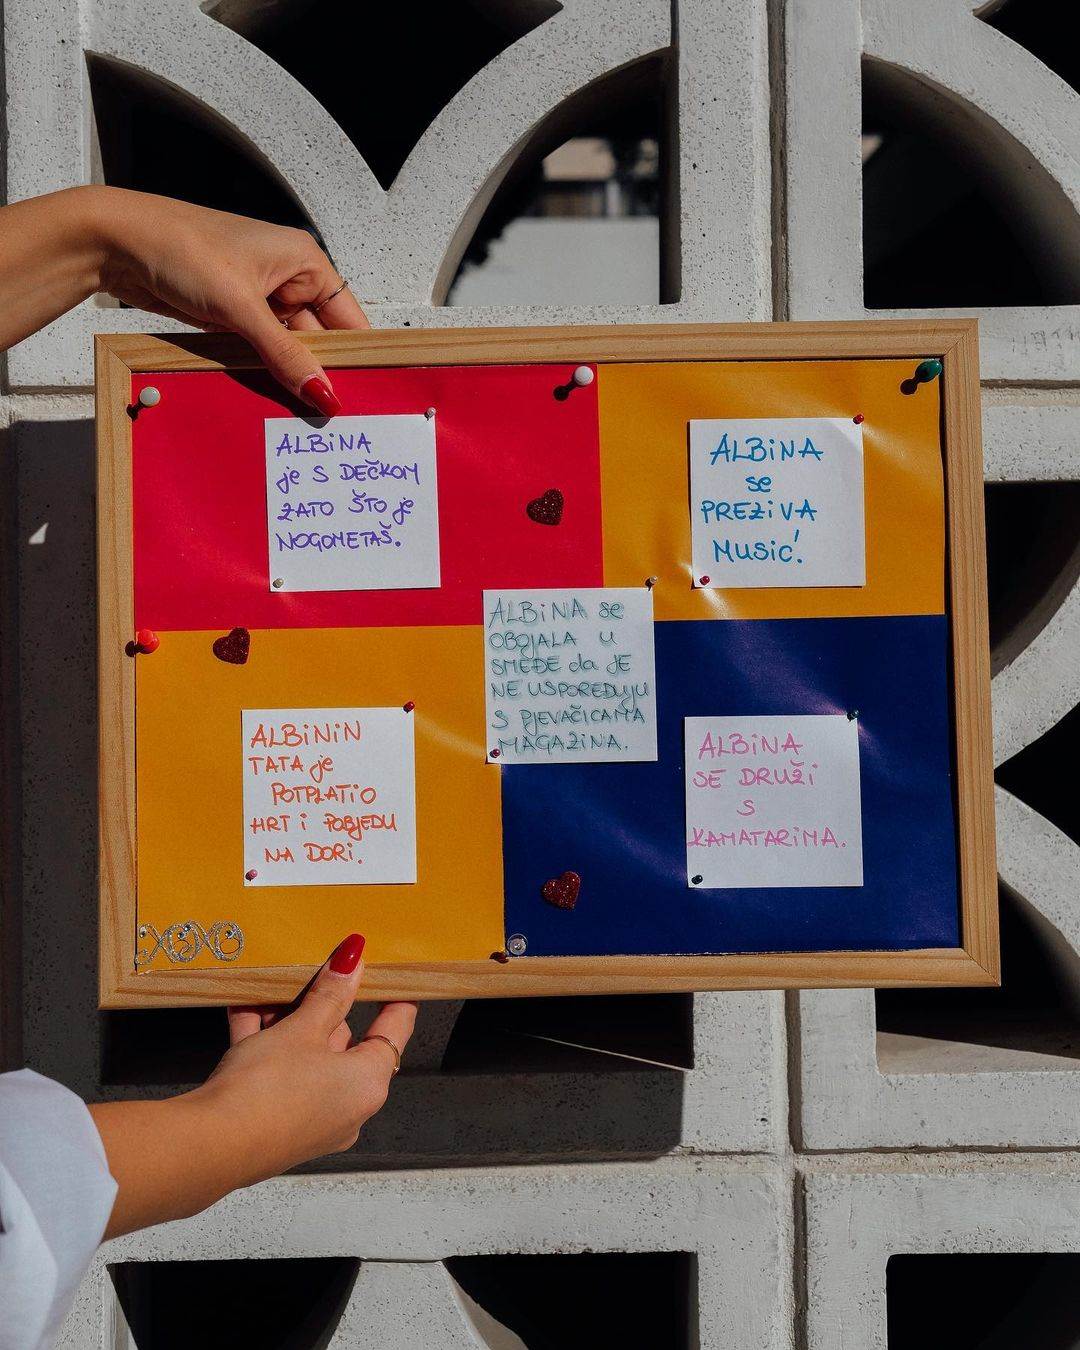 ALBiNA
je S DEČKOM
ZATO ŠTO je
NOGOMETAŠ.
ALBiNA
se
PREZiVA
MUSić!
ALBiNA se
OBOJALA U
SMEĐE da JE
NE USPOREĐUJU
S PJEVAČICAMA
MAGAZiNA.
ALBiNiN
TATA je
POTPLATiO
HRT i POBJEDU
NA DORi.
ALBiNA
SE DRUŽi
S
KAMATARiMA.
XOXO